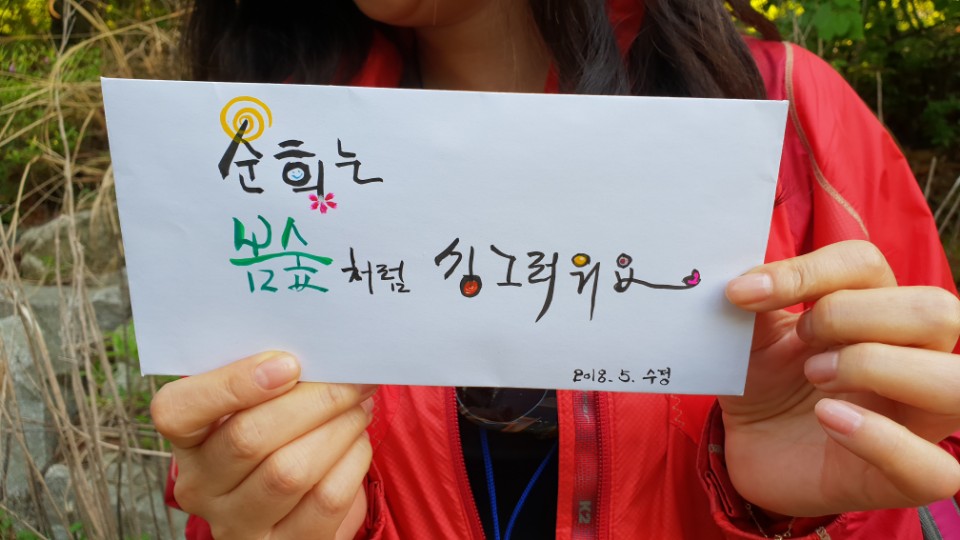 순희는
봄숲처럼 싱그러워요
2018. 5. 수정
K2